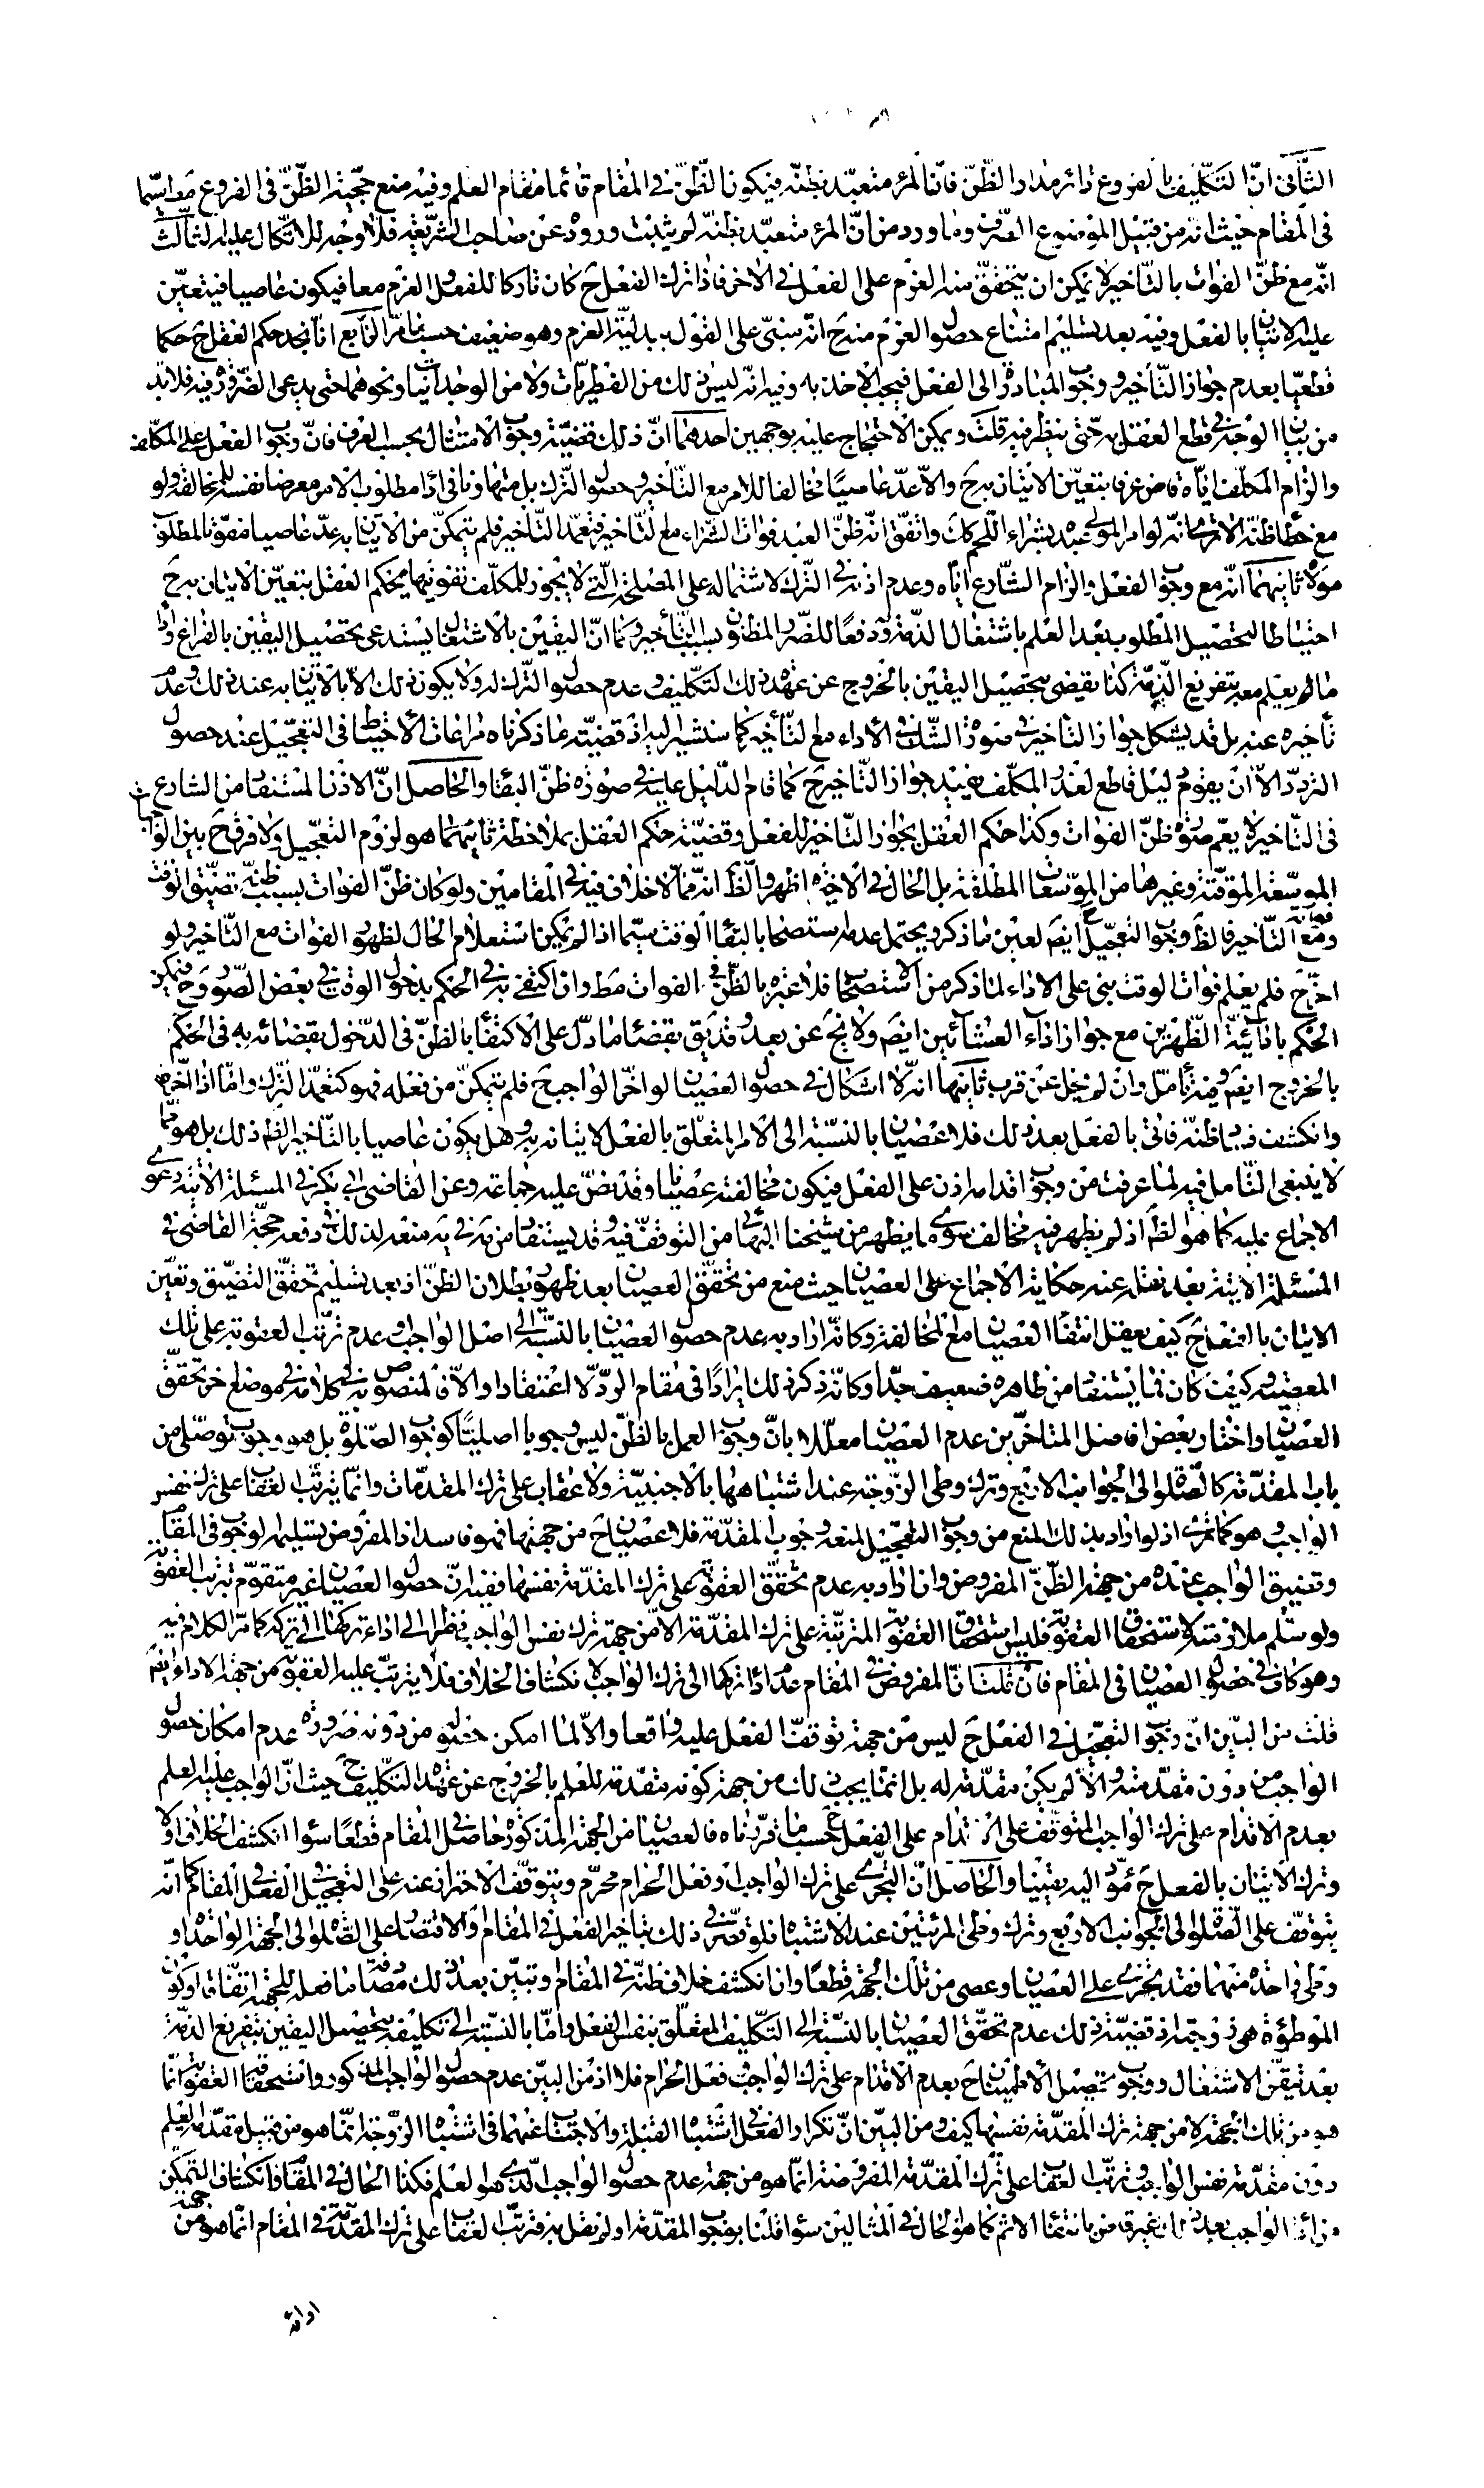 الثاني انّ التكليف بالفروع دائر مدار الظنّ فانّ المرء متعبّد بظنّه فيكون الظنّ في المقام قائما مقام العلم وفيه منع حجّية الظنّ في الفروع مط سيّما
في المقام حيث انه من قبيل الموضوع الصّرف وما ورد من انّ المرء متعبّد بظنّه لم يثبت وروده عن صاحب الشّريعة فلا وجه للاتّكال عليه الثالث
انّه مع ظنّ الفوات بالتّأخير لا يمكن ان يتحقّق منه العزم على الفعل في الاخر فاذا ترك الفعل ح كان تاركا للفعل والعزم معا فيكون عاصيا فيتعيّن
عليه الاتيان بالفعل وفيه بعد تسليم امتناع حصول العزم منه ح انّه مبنيّ على القول ببدليّة العزم وهو ضعيف حسبما مرّ الرّابع انّا نجد حكم العقل ح حكما
قطعيّا بعدم جواز التّأخير ووجوب المبادرة الى الفعل فيجب الاخذ به وفيه انّه ليس ذلك من الفطريّات ولا من الوجدانيّات ونحوهما حتى يدعى الضّرورة فيه فلا بد
من بيان الوجه في قطع العقل به حتّى ينظر فيه قلت ويمكن الاحتجاج عليه بوجهين احدهما انّ ذلك قضيّة وجوب الامتثال بحسب العرف فانّ وجوب الفعل على المكلّف
والزام المكلّف ايّاه قاض عرفا بتعيّن الاتيان به ح والّا عدّ عاصيا مخالفا للامر مع التّأخير وحصول التّرك بل متهاونا في اداء مطلوب الامر معرضا نفسه للمخالفة ولو
مع خطأ ظنّه الا ترى انّه لو امر المولى عبده بشراء اللّحم كك واتّفق انّه ظنّ العبد فوات الشّراء مع التّأخير فتعمّد التّأخير فلم يتمكّن من الاتيان به عدّ عاصيا مفوّتا لمطلوب
مولاه ثانيهما انّه مع وجوب الفعل والزام الشّارع ايّاه وعدم اذنه في التّرك لاشتماله على المصلحة الّتي لا يجوز للمكلّف تفويتها يحكم العقل بتعيّن الاتيان به ح
احتياطا لتحصيل المطلوب بعد العلم باشتغال الذمّة ودفعا للضّرر المظنون بسبب التّأخير وكما انّ اليقين بالاشتغال يستدعي تحصيل اليقين بالفراغ واذا
ما لم يعلم معه بتفريغ الذّمّة كذا يقضي بتحصيل اليقين بالخروج عن عهدة ذلك التّكليف وعدم حصول التّرك له ولا يكون ذلك الّا بالاتيان به عند ذلك وعدم
تأخيره عنه بل قد يشكل جواز التأخير في صورة الشّك في الأداء مع التّأخير كما سنشير اليه اذ قضيّة ما ذكرناه مراعاة الاحتياط في التعجيل عند حصول
التردّد الّا ان يقوم دليل قاطع لعذر المكلّف يفيد جواز التّأخير ح كما قام الدّليل عليه في صورة ظنّ البقاء والحاصل انّ الاذن المستفاد من الشّارع
في التّأخير لا يعمّ صورة ظنّ الفوات وكذا حكم العقل بجواز التّأخير للفعل وقضيّة حكم العقل بملاحظة ثانيهما هو لزوم التعجيل ولا فرق ح بين الواجبات
الموسّعة الموقّتة وغيرها من الموسّعات المطلقة بل الحال في الاخيرة اظهر والظّ انّه ممّا لا خلاف فيه في المقامين ولو كان ظنّ الفوات بسبب ظنّه تضيّق الوقت
ومع التّأخير فالظّ وجوب التعجيل ايضم لعين ما ذكر ويحتمل عدمه استصحابا لبقاء الوقت سيّما اذا لم يمكن استعلام الحال لظهور الفوات مع التّأخير ولو
اخّر ح فلم يعلم فوات الوقت بنى على الاداء لما ذكر من الاستصحاب فلا عبرة بالظّن في الفوات مط وان اكتفى به في الحكم بدخول الوقت في بعض الصّور وح فيمكن
الحكم بادائيّة الظّهرين مع جواز اداء العشائين ايضم ولا يخ عن بعد وقد يق بقضاء ما دلّ على الاكتفاء بالظنّ في الدّخول بقضائه به في الحكم
بالخروج ايضم وفيه تأمّل وان لم يخل عن قرب ثانيها انّه لا اشكال في حصول العصيان لو اخّر الواجب ح فلم يتمكّن من فعله فهو كتعمّد التّرك وامّا اذا اخّره
وانكشف فساد ظنّه فاتى بالفعل بعد ذلك فلا عصيان بالنّسبة الى الامر المتعلّق بالفعل لاتيانه به وهل يكون عاصيا بالتّأخير الظّ ذلك بل هو ممّا
لا ينبغي التّأمل فيه لما عرفت من وجوب اقدامه اذن على الفعل فيكون مخالفته عصيانا وقد نصّ عليه جماعة وعن القاضي ابي بكر في المسئلة الآتية دعوى
الاجماع عليه كما هو الظّ اذ لم يظهر فيه مخالف سوى ما يظهر من شيخنا البهائي من التوقّف فيه وقد يستفاد منه في ية منعه لذلك في دفعه حجّة القاضي في
المسئلة الآتية بعد نقله عنه حكاية الاجماع على العصيان حيث منع من تحقّق العصيان بعد ظهور بطلان الظّنّ اذ بعد تسليم تحقّق التضيّق وتعيّن
الاتيان بالفعل ح كيف يعقل انتفاء العصيان مع المخالفة وكانّه اراد به عدم حصول العصيان بالنّسبة الى اصل الواجب وعدم ترتّب العقوبة على تلك
المعصية وكيف كان فما يستفاد من ظاهره ضعيف جدّا وكانّه ذكر ذلك ايرادا في مقام الردّ لا اعتقادا والّا فالمنصوص به في كلامه في موضع اخر تحقّق
العصيان واختار بعض افاضل المتاخّرين عدم العصيان معلّلا بانّ وجوب العمل بالظنّ ليس وجوبا اصليّا كوجوب الصّلوة بل هو وجوب توصّلي من
باب المقدّمة كالصّلوة الى الجوانب الاربع وترك وطي الزّوجة عند اشتباهها بالاجنبيّة ولا عقاب على ترك المقدّمات وانّما يترتّب العقاب على ترك نفس
الواجب وهو كما ترى اذ لو اراد بذلك المنع من وجوب التعجيل لمنعه وجوب المقدّمة فلا عصيان ح من جهتها فهو فاسد اذ المفروض تسليمه لوجوبه في المقام
وتضييق الواجب عنده من جهة الظّنّ المفروض وان اراد به عدم تحقّق العقوبة على ترك المقدّمة بنفسها ففيه انّ حصول العصيان غير متقوّم بترتّب العقوبة
ولو سلّم ملازمته لاستحقاق العقوبة فليس استحقاق العقوبة المترتّبة على ترك المقدّمة الّا من جهة ترك نفس الواجب نظرا الى اداء تركها الى تركه كما مرّ الكلام فيه
وهو كاف في حصول العصيان في المقام فان قلت انّ المفروض في المقام عدم اداء تركها الى ترك الواجب لانكشاف الخلاف فلا يترتّب عليه العقوبة من جهة الاداء ايضم
قلت من البيّن انّ وجوب التعجيل في الفعل ح ليس من جهة توقّف الفعل عليه واقعا والّا لما امكن حصوله من دونه ضرورة عدم امكان حصول
الواجب من دون مقدّمته والّا لم يكن مقدّمة له بل انّما يجب ذلك من جهة كونه مقدّمة للعلم بالخروج عن عهدة التكليف ح حيث انّ الواجب عليه العلم
بعدم الاقدام على ترك الواجب المتوقّف على الاقدام على الفعل ح حسب ما قرّرناه فالعصيان من الجهة المذكورة حاصل في المقام قطعا سواء انكشف الخلاف او لا
وترك الاتيان بالفعل ح مؤدّ اليه يقينا والحاصل انّ التجرّي على ترك الواجب او فعل الحرام محرّم ويتوقّف الاحتراز عنه على التعجيل في الفعل في المقام كما انّه
يتوقّف على الصّلوة الى الجوانب الاربع وترك وطي المرئتين عند الاشتباه فلو قصّر في ذلك بتأخير الفعل في المقام والاقتصار على الصّلوة الى الجهة الواحدة او
وطي واحدة منهما فقد تجرّى على العصيان وعصى من تلك الجهة قطعا وان انكشف خلاف ظنّه في المقام وتبيّن بعد ذلك مصادفة ما فعله للجهة اتّفاقا او كون
الموطؤة هي زوجته اذ قضيّة ذلك عدم تحقّق العصيان بالنّسبة الى التكليف المتعلّق بنفس الفعل وامّا بالنّسبة الى تكليفه بتحصيل اليقين بتفريغ الذمّة
بعد تيقّن الاشتغال ووجوب تحصيل الاطمينان ح بعدم الاقدام على ترك الواجب وفعل الحرام فلا اذ من البيّن عدم حصول الواجب المذكور واستحقاق العقوبة انّما
هو من تلك الجهة لا من جهة ترك المقدّمة نفسها كيف ومن البيّن انّ تكرار الفعل في اشتباه القبلة والاجتناب عنهما في اشتباه الزّوجة انّما هو من قبيل مقدّمة العلم
دون مقدّمة نفس الواجب وترتّب العقاب على ترك المقدّمة المفروضة انّما هو من جهة عدم حصول الواجب الّذي هو العلم فكذا الحال في المقام فانكشاف التمكّن
من اداء الواجب بعد ذلك غير قاض بانتفاء الاثم كما هو الحال في المثالين سواء قلنا بوجوب المقدّمة او لم نقل به فترتّب العقاب على ترك المقدّمة في المقام انّما هو من جهة